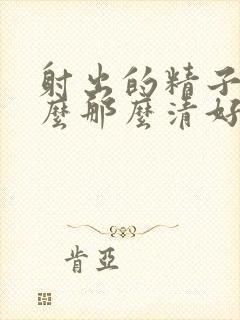 射出的精子
麼那麼清好
肯亞